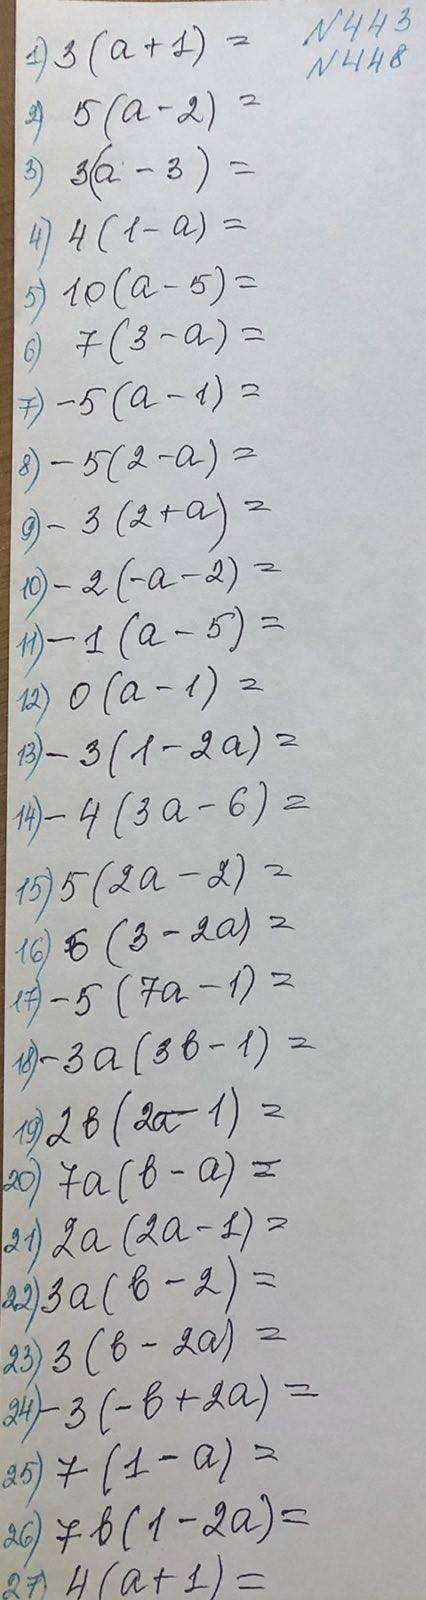 1) 3(a+1)= №443
№448
2) 5(a-2)=
3) 3(a-3)=
4) 4(1-a)=
5) 10(a-5)=
6) 7(3-a)=
7) -5(a-1)=
8) -5(2-a)=
9) -3(2+a)=
10) -2(-a-2)=
11) -1(a-5)=
12) 0(a-1)=
13) -3(1-2a)=
14) -4(3a-6)=
15) 5(2a-2)=
16) 6(3-2a)=
17) -5(7a-1)=
18) -3a(3b-1)=
19) 2b(2a-1)=
20) 7a(b-a)=
21) 2a(2a-1)=
22) 3a(b-2)=
23) 3(b-2a)=
24) -3(-b+2a)=
25) 7(1-a)=
26) 7b(1-2a)=
27) 4(a+1)=